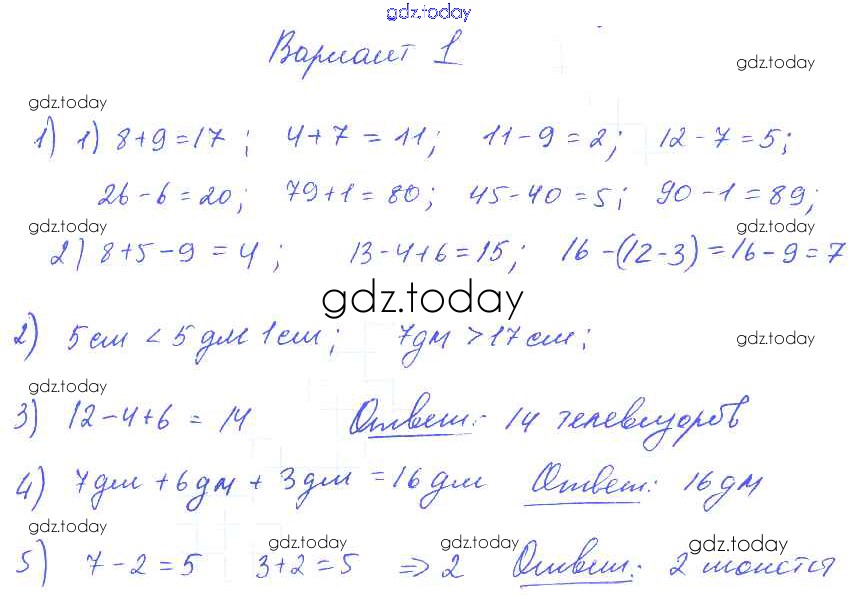 gdz.today
Вариант 1
gdz.today
gdz.today
1) 1) 8+9=17; 4+7=11; 11-9=2; 12-7=5;
26-6=20; 79+1=80; 45-40=5; 90-1=89;
gdz.today gdz.today
2) 8+5-9=4; 13-4+6=15; 16-(12-3)=16-9=7
gdz.today
2) 5 см < 5 дм 1 см; 7дм > 17 см; gdz.today
gdz.today
3) 12-4+6=14 Ответ: 14 телевизоров
4) 7дм + 6дм + 3дм = 16 дм Ответ: 16 дм
gdz.today
gdz.today gdz.today gdz.today
5) 7-2=5 3+2=5 => 2 Ответ: 2 монеты